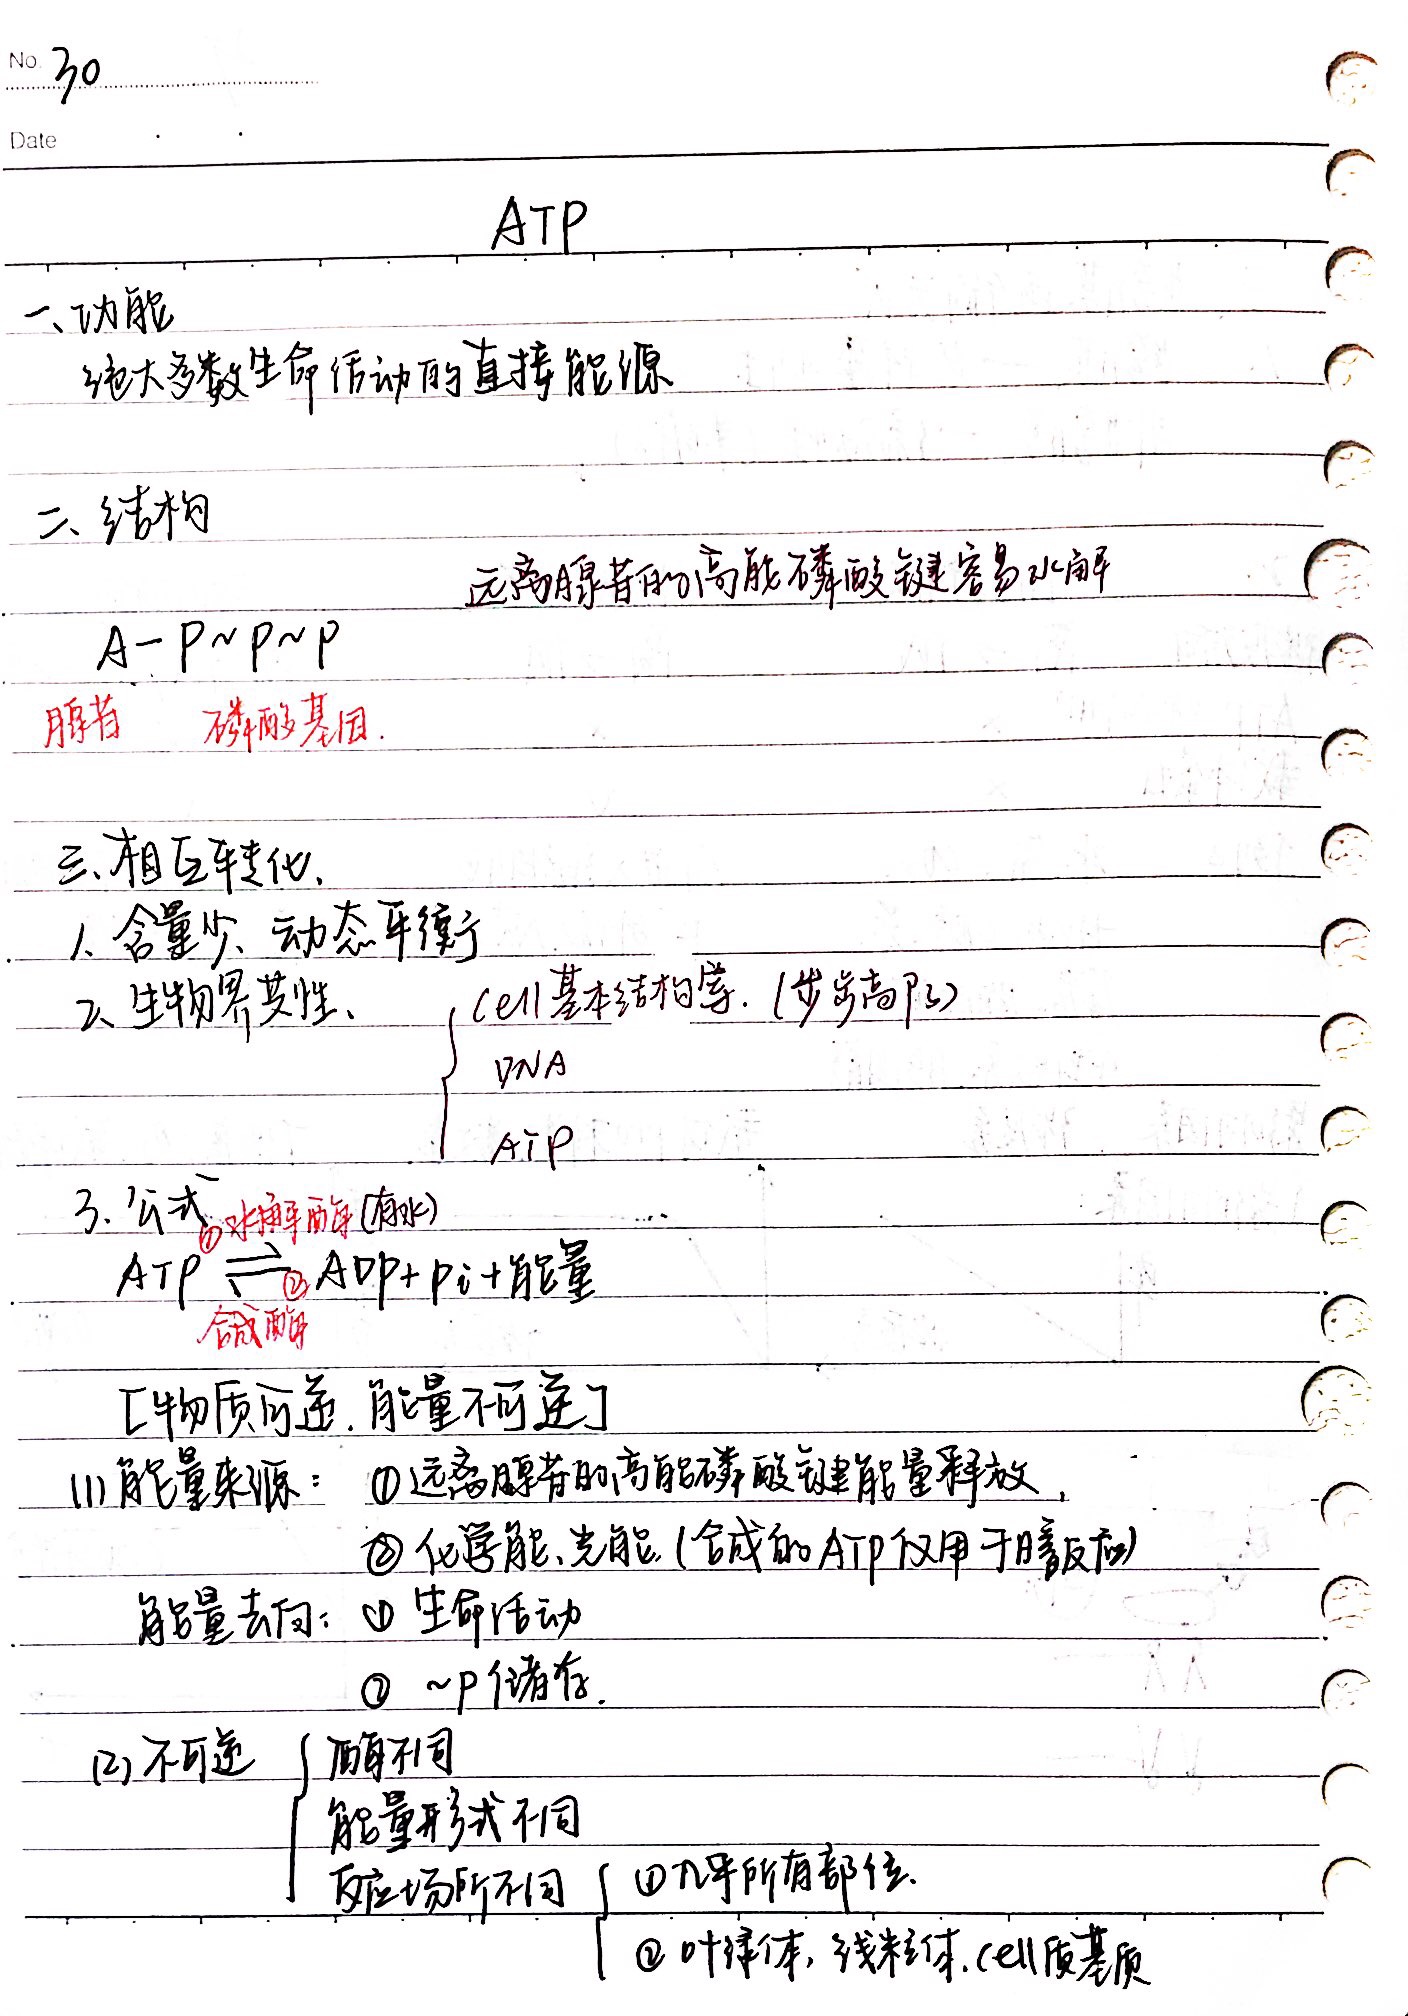 No. 30
Date
ATP
一、功能
绝大多数生命活动的直接能源
二、结构
远离腺苷的高能磷酸键容易水解
A-P~P~P
腺苷 磷酸基团.
三、相互转化、
1、含量少、动态平衡
2、生物界共性、
cell基本结构等.(步步高P3)
DNA
ATP
3. 公式
①水解酶(有水)
ATP ⇌ ② ADP+Pi+能量
合成酶
[物质可逆.能量不可逆]
(1)能量来源: ①远离腺苷的高能磷酸键能量释放,
②化学能、光能(合成的ATP仅用于暗反应)
能量去向: ①生命活动
② ~P储存.
(2)不可逆 酶不同
能量形式不同
反应场所不同 ①几乎所有部位.
②叶绿体,线粒体.cell质基质